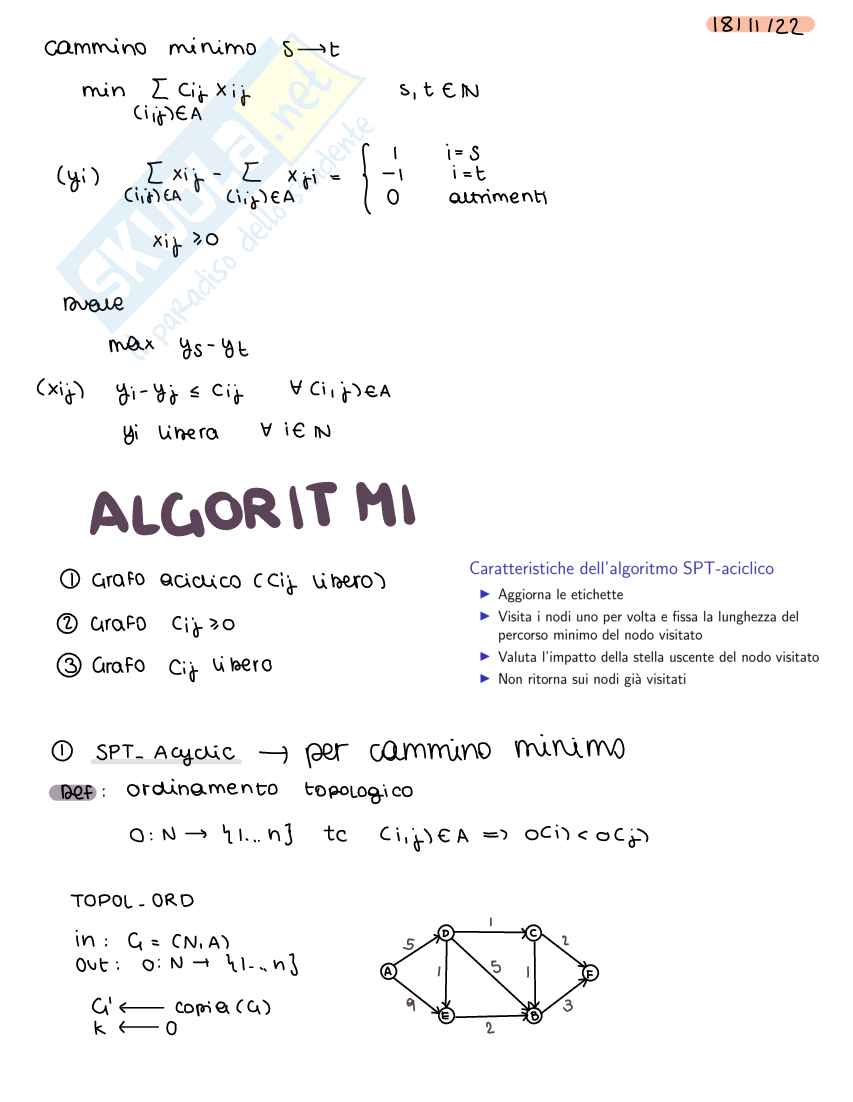 18/11/22
cammino minimo s→t
min Σ cij xij s, t ∈ N
(i,j)∈A
(yi) Σ xij - Σ xji = { 1 i=s
(i,j)∈A (i,j)∈A -1 i=t
0 altrimenti
xij ≥ 0
SKUOLA.net
il paradiso dello studente
Duale
max ys - yt
(xij) yi - yj ≤ cij ∀ (i,j)∈A
yi libera ∀ i∈N
ALGORITMI
① Grafo aciclico (cij libero)
② Grafo cij ≥ 0
③ Grafo cij libero
Caratteristiche dell'algoritmo SPT-aciclico
▶ Aggiorna le etichette
▶ Visita i nodi uno per volta e fissa la lunghezza del
percorso minimo del nodo visitato
▶ Valuta l'impatto della stella uscente del nodo visitato
▶ Non ritorna sui nodi già visitati
① SPT_Acyclic → per cammino minimo
Def: ordinamento topologico
O: N → {1...n} tc (i,j)∈A => O(i) < O(j)
TOPOL_ORD
in: G = (N,A)
Out: O: N → {1...n}
G' ← copia(G)
k ← 0
1
D C
5 2
A 1 5 1 F
9 3
E B
2